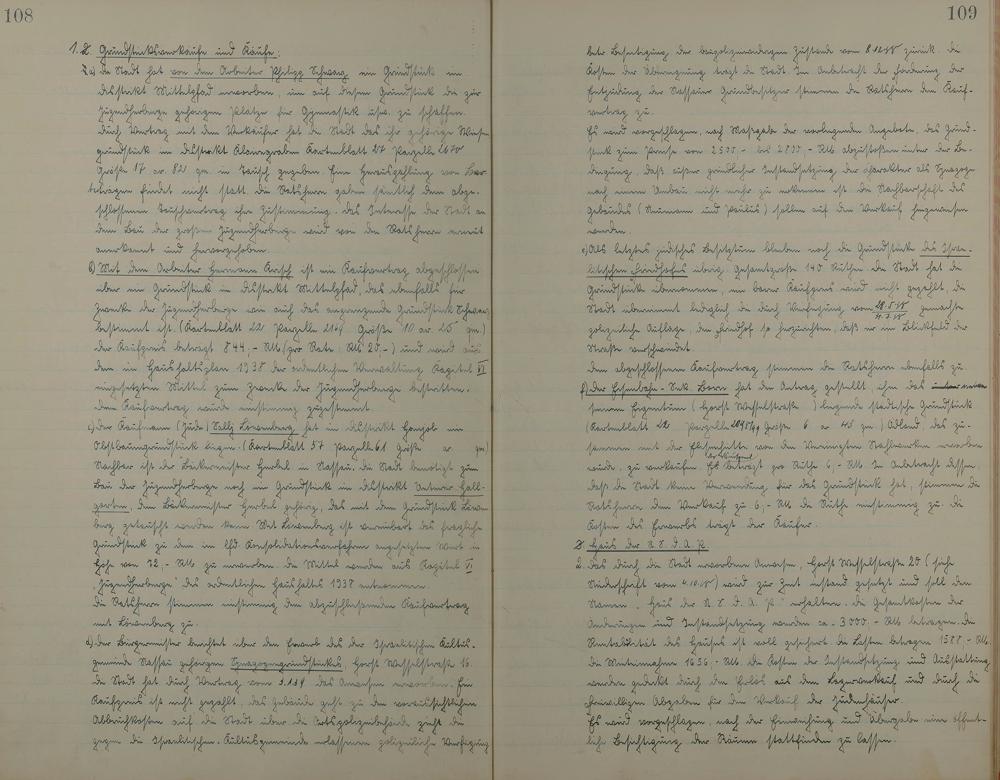 108
1. Grundstücksverkäufe und Käufe:
a) die Stadt hat von dem Arbeiter Philipp Schwarz ein Grundstück im
Distrikt Mittelpfad erworben, um auf diesem Grundstück die zur
Jugendherberge gehörigen Plätze für Gymnastik usw. zu schaffen.
Durch Vertrag mit dem Verkäufer hat die Stadt das ihr gehörige Wiesen
grundstück im Distrikt Kartenblatt 27 Parzelle
Größe 17 ar 82 qm in Tausch gegeben. Eine Herauszahlung von Bar
beträgen findet nicht statt. Die Ratsherren gaben sämtlich dem abge-
schlossenen Tauschvertrag ihre Zustimmung. Das Interesse der Stadt an
dem Bau der großen Jugendherberge wird von den Ratsherren erneut
anerkannt und hervorgehoben.
b) Mit dem Arbeiter Hermann ist ein Kaufvertrag abgeschlossen
über ein Grundstück im Distrikt Mittelpfad, das ebenfalls für
Zwecke der Jugendherberge wie auch das angrenzende Grundstück Schwarz
bestimmt ist. (Kartenblatt 22 Parzelle Größe 10 ar 26 qm.)
Der Kaufpreis beträgt 844,- RM (pro Rute RM 20,-) und wird aus
den im Haushaltsplan 1938 der ordentlichen Verwaltung Kapitel VI
eingesetzten Mittel zum Zwecke der Jugendherberge bestritten.
Dem Kaufvertrag wurde einstimmig zugestimmt.
c) Der Kaufmann (Jude) Sally Löwenberg hat im Distrikt ein
Obstbaumgrundstück liegen. (Kartenblatt 57 Parzelle 61 Größe ar qm)
Nachbar ist der Bäckermeister Herbel in Nassau. Die Stadt benötigt zum
Bau der Jugendherberge noch ein Grundstück im Distrikt Unterer Hall-
garten, dem Bäckermeister Herbel gehörig, das mit dem Grundstück Löwen
berg getauscht werden kann. Mit Löwenberg ist vereinbart das fragliche
Grundstück zu dem im lfd. Konsolidationsverfahren angesetzten Wert in
Höhe von 72,- RM zu erwerben. Die Mittel werden aus Kapitel VI
"Jugendherberge" des ordentlichen Haushaltes 1938 entnommen.
Die Ratsherren stimmen einstimmig dem abzuschließenden Kaufvertrag
mit Löwenberg zu.
d) Der Bürgermeister berichtet über den Erwerb des der Israelitischen Kultus-
gemeinde Nassau gehörigen Synagogengrundstückes, Horst Wesselstraße 16.
Die Stadt hat durch Vertrag vom das Anwesen erworben. Ein
Kaufpreis ist nicht gezahlt, das Gebäude geht zu den voraussichtlichen
Abbruchkosten auf die Stadt über. Die Ortspolizeibehörde zieht die
gegen die Israelitische Kultusgemeinde erlassene polizeiliche Verfügung
109
betr. Beseitigung des baupolizeiwidrigen Zustandes vom zurück. Die
Kosten der Übereignung trägt die Stadt. In Anbetracht der Förderung der
Entjudung des Nassauer Grundbesitzes stimmen die Ratsherren dem Kauf-
vertrag zu.
Es wird vorgeschlagen, nach Maßgabe der vorliegenden Angebote, das Grund-
stück zum Preise von 2500,- bis 2800,- RM abzustoßen unter der Be-
dingung, daß außer gründlicher Instandsetzung, der Charakter als Synagoge
nach einem Umbau nicht mehr zu erkennen ist. Die Nachbarschaft des
Gebäudes (Neumann und Paulus) sollen auf den Verkauf hingewiesen
werden.
e) Als letztes jüdisches Besitztum blieben noch die Grundstücke des Isra-
elitischen Friedhofes übrig. Gesamtgröße 140 Ruthen. Die Stadt hat die
Grundstücke übernommen, ein barer Kaufpreis wird nicht gezahlt, die
Stadt übernimmt lediglich die durch Verfügung vom gemachte
polizeiliche Auflage, den Friedhof so herzurichten, daß er im Blickfeld der
Straße verschwindet.
Dem abgeschlossenen Kaufvertrag stimmen die Ratsherren ebenfalls zu.
f) Der Eisenbahn-Sekr. Born hat den Antrag gestellt, ihm das
seinem Eigentum (Horst Wesselstraße) liegende städtische Grundstück
(Kartenblatt 22 Parzelle Größe 6 ar 45 qm) Ödland, das zu-
sammen mit der Elisenhütte von den Vereinigten Stahlwerken erworben
wurde, zu verkaufen. beträgt pro Ruthe 6,- RM. In Anbetracht dessen,
daß die Stadt keine Verwendung für das Grundstück hat, stimmen die
Ratsherren dem Verkauf zu 6,- RM die Ruthe einstimmig zu. Die
Kosten des Erwerbs trägt der Käufer.
Haus der N.S.D.A.P.
2. Das durch die Stadt erworbene Anwesen, Horst Wesselstraße 20 (siehe
Niederschrift vom ) wird zur Zeit instand gesetzt und soll den
Namen "Haus der N.S.D.A.P." erhalten. Die Gesamtkosten der
Änderungen und Instandsetzung werden ca. 3000,- RM betragen. Die
Rentabilität des Hauses ist voll gesichert. Die Lasten betragen 1588,- RM.
die Mieteinnahmen 1656,- RM. Die Kosten der Instandsetzung und Ausstattung
werden gedeckt durch den Erlös aus dem Lagerverkauf und durch die
freiwilligen Abgaben für den Verkauf der Judenhäuser.
Es wird vorgeschlagen, nach der Einweihung und Übergabe eine öffent-
liche Besichtigung der Räume stattfinden zu lassen.